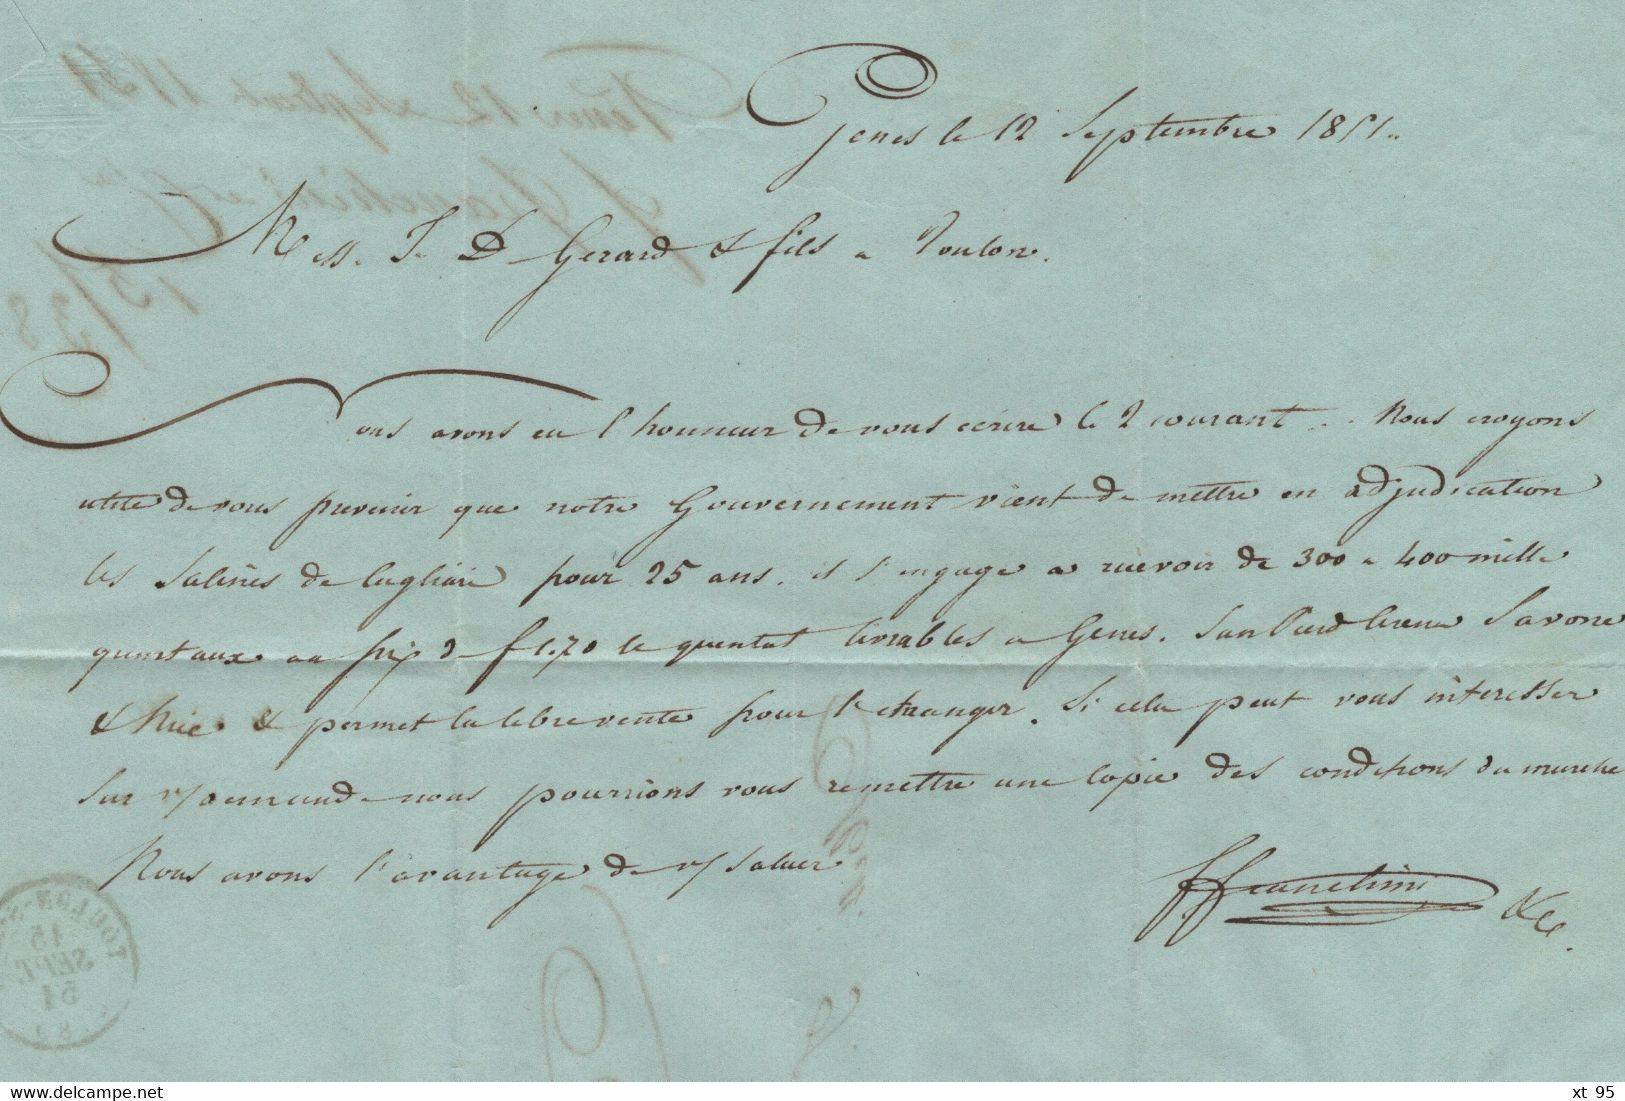 Genes le 12 Septembre 1851.
Mess. J. D Gerard & fils a Toulon.
Nous avons eu l'honneur de vous écrire le 2 courant. Nous croyons
utile de vous prevenir que notre Gouvernement vient de mettre en adjudication
les Salines de Cagliari pour 25 ans. il s'engage a recevoir de 300 a 400 mille
quintaux au prix de f 1.70 le quintal livrables a Genes. San Pierd'Arena Savone
& Nice & permet la libre vente pour l'etranger. Si cela peut vous interesser
Sur v/ demande nous pourrions vous remettre une Copie des conditions du marche
Nous avons l'avantage de v/ Saluer
Franchini & Ce.
Genes 12 Septemb. 1851
J. Franchini et Cie
15/38
TOULON-S-
15
SEPT.
51
delcampe.net
xt_95